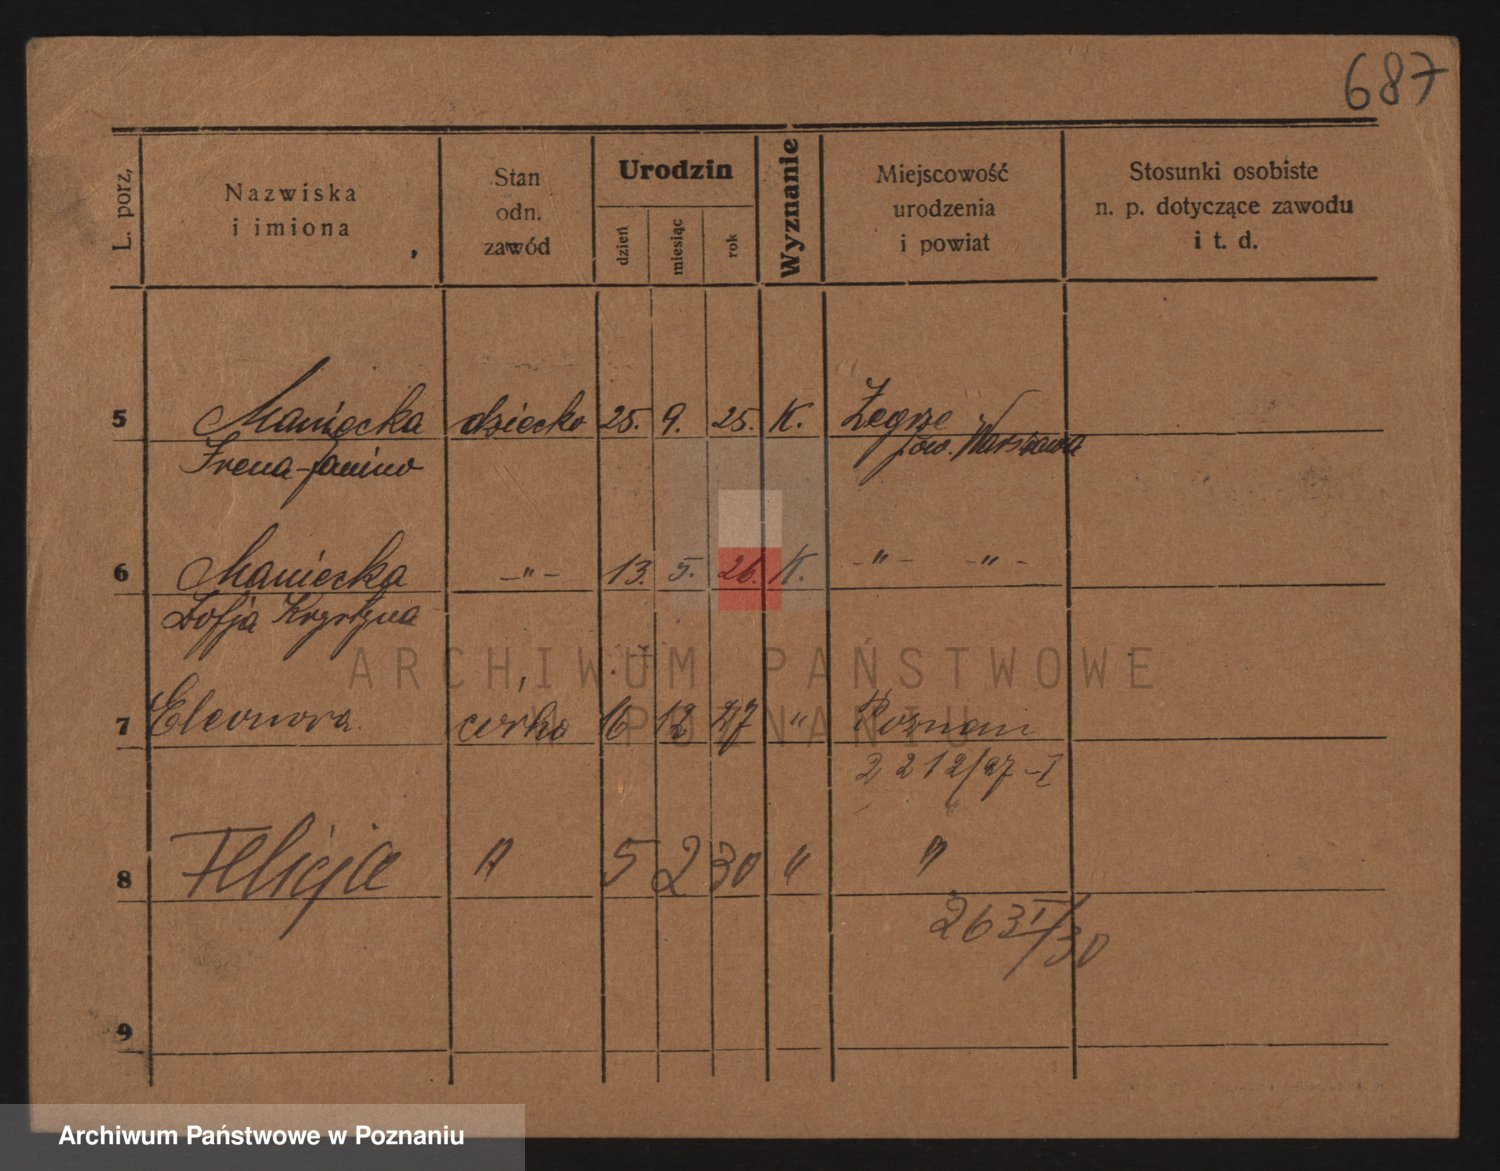 687
L. porz.
Nazwiska
i imiona
Stan
odn.
zawód
Urodzin
dzień
miesiąc
rok
Wyznanie
Miejscowość
urodzenia
i powiat
Stosunki osobiste
n. p. dotyczące zawodu
i t. d.
5 Maniecka dziecko 25. 9. 25. K. Zegrze
Irena-Janina pow. Warszawa
6 Maniecka -"- 13. 5. 26. K. -"- -"-
Zofja Krystyna
7 Eleonora córka 16 12 27 " Poznań
2212/27-I
8 Felicja " 5 2 30 " "
263 I/30
9
ARCHIWUM PAŃSTWOWE
W POZNANIU
Archiwum Państwowe w Poznaniu